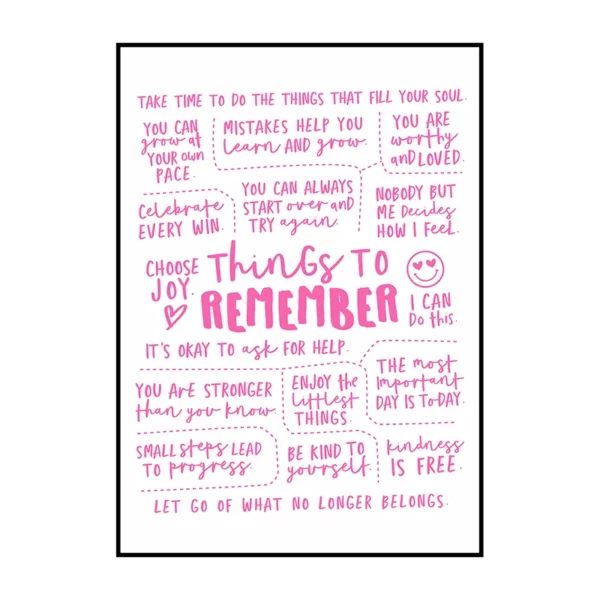 TAKE TIME TO DO THE THINGS THAT FILL YOUR SOUL.
YOU CAN
grow at
YOUR own
PACE.
MISTAKES HELP YOU
learn AND grow.
YOU ARE
worthy
anD LOVED.
Celebrate
EVERY WIN.
YOU CAN ALWAYS
START over and
TRY again.
NOBODY BUT
ME Decides
HOW I FeeL.
CHOOSE
JOY.
THINGS TO
REMEMBER
I CAN
Do this.
IT'S OKAY TO ask FOR HELP.
YOU ARE STRONGER
than you know.
ENJOY the
littlest
THINGS.
THE most
Important
DAY IS ToDAY.
SMALL steps LEAD
TO progress.
BE KIND TO
yourself.
kindness
IS FREE.
LET GO OF WHAT NO LONGER BELONGS.